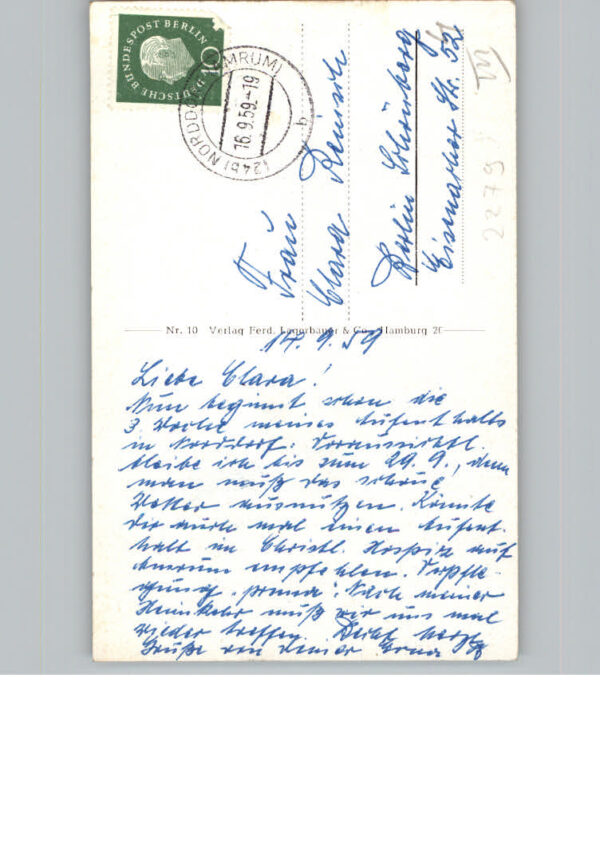 DEUTSCHE BUNDESPOST BERLIN
10
(24b) NORDDORF (AMRUM)
16.9.59-19
b
Frau
Clara
Berlin Schöneberg
Eisenacher Str. 52
VII
2279
Nr. 10 Verlag Ferd. Lagerbauer & Co. Hamburg 20
14.9.59
Liebe Clara!
Nun beginnt schon die
3. Woche meines Aufenthalts
in Norddorf. Voraussichtl.
bleibe ich bis zum 29.9., denn
man muß das schöne
Wetter ausnutzen. Könnte
Dir auch mal einen Aufent-
halt im Christl. Hospiz auf
Amrum empfehlen. Verpfle-
gung „prima“. Nach meiner
Heimkehr muß wir uns mal
wieder treffen. herzl.
Grüße von Deiner Erna